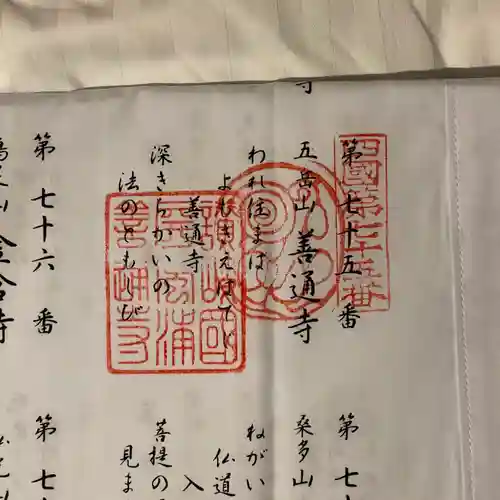 第七十五番
五岳山 善通寺
われ住まば
よもきえはてじ
善通寺
深きちかいの
法のともしび
第七十六番
金倉寺
四國第七十五番
讃岐國
五岳浦
善通寺
第七
桑多山
ねがい
仏道
入
菩提の
見ま
第七